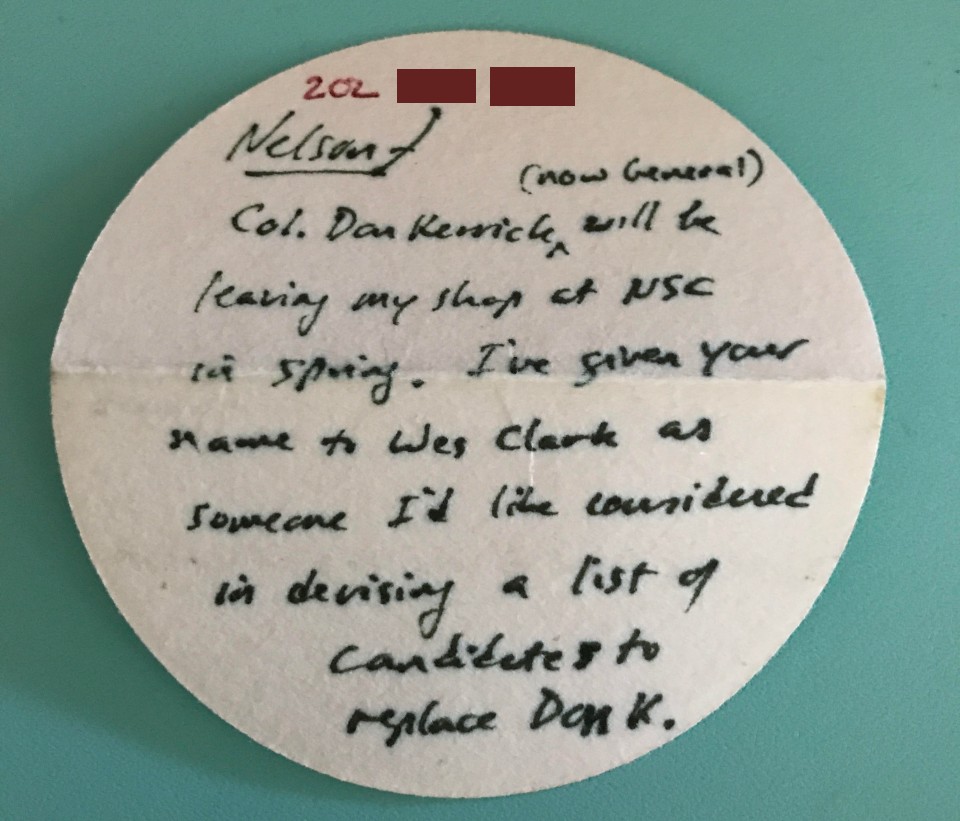 202
Nelson
(now General)
Col. Don Kerrick ^ will be
leaving my shop at NSC
in spring. I've given your
name to Wes Clark as
someone I'd like considered
in devising a list of
candidates to
replace Don K.